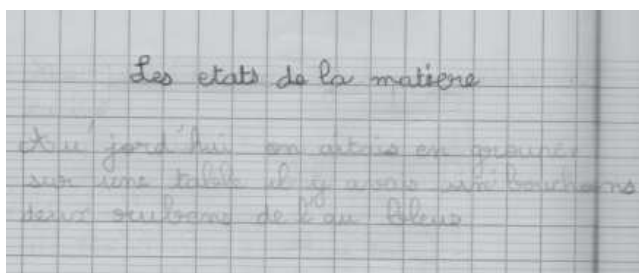 Les etats de la matière
Au'jord'hui on etais en groupe
sur une table il y avais un bouchons
deux rubans de l'eau bleue